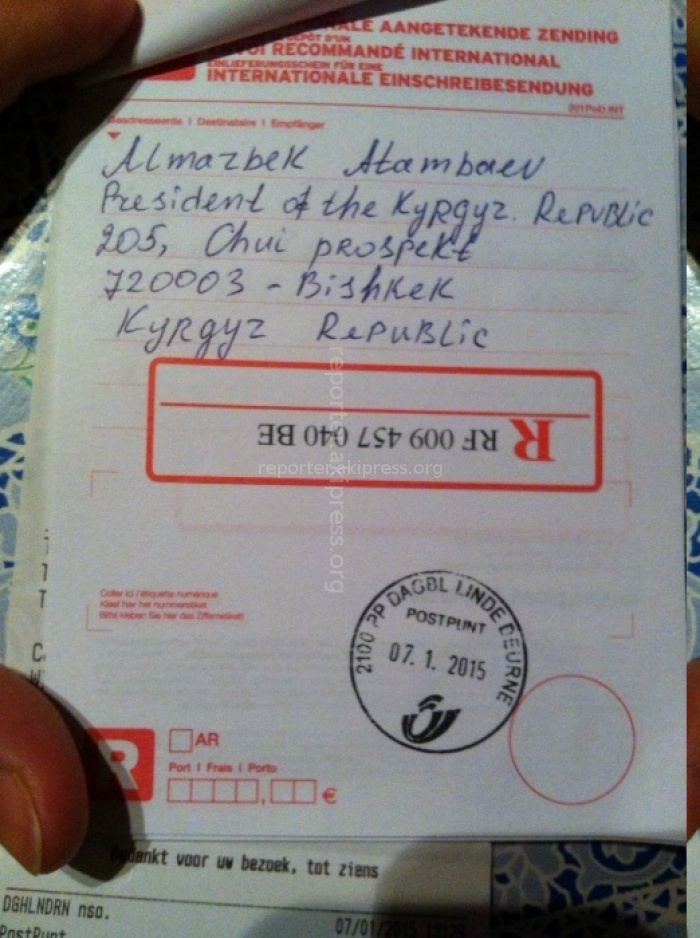 ALE AANGETEKENDE ZENDING
DÉPÔT D'UN
OI RECOMMANDÉ INTERNATIONAL
EINLIEFERUNGSSCHEIN FÜR EINE
INTERNATIONALE EINSCHREIBESENDUNG
Geadresseerde I Destinataire I Empfänger
Almazbek Atambaev
President of the Kyrgyz. Republic
205, Chui prospekt
720003 - Bishkek
Kyrgyz Republic
R RF 009 457 040 BE
reporter.akipress.org
reporter.akipress.org
Coller ici l'étiquette numérique
Kleef hier het nummeretiket
Bitte kleben Sie hier das Ziffernetikett
2100 PP DAGBL LINDE DEURNE
POSTPUNT
07. 1. 2015
R
AR
Port I Frais I Porto
, €
Bedankt voor uw bezoek, tot ziens
DGHLNDRN nso.
PostPunt
07/01/2015